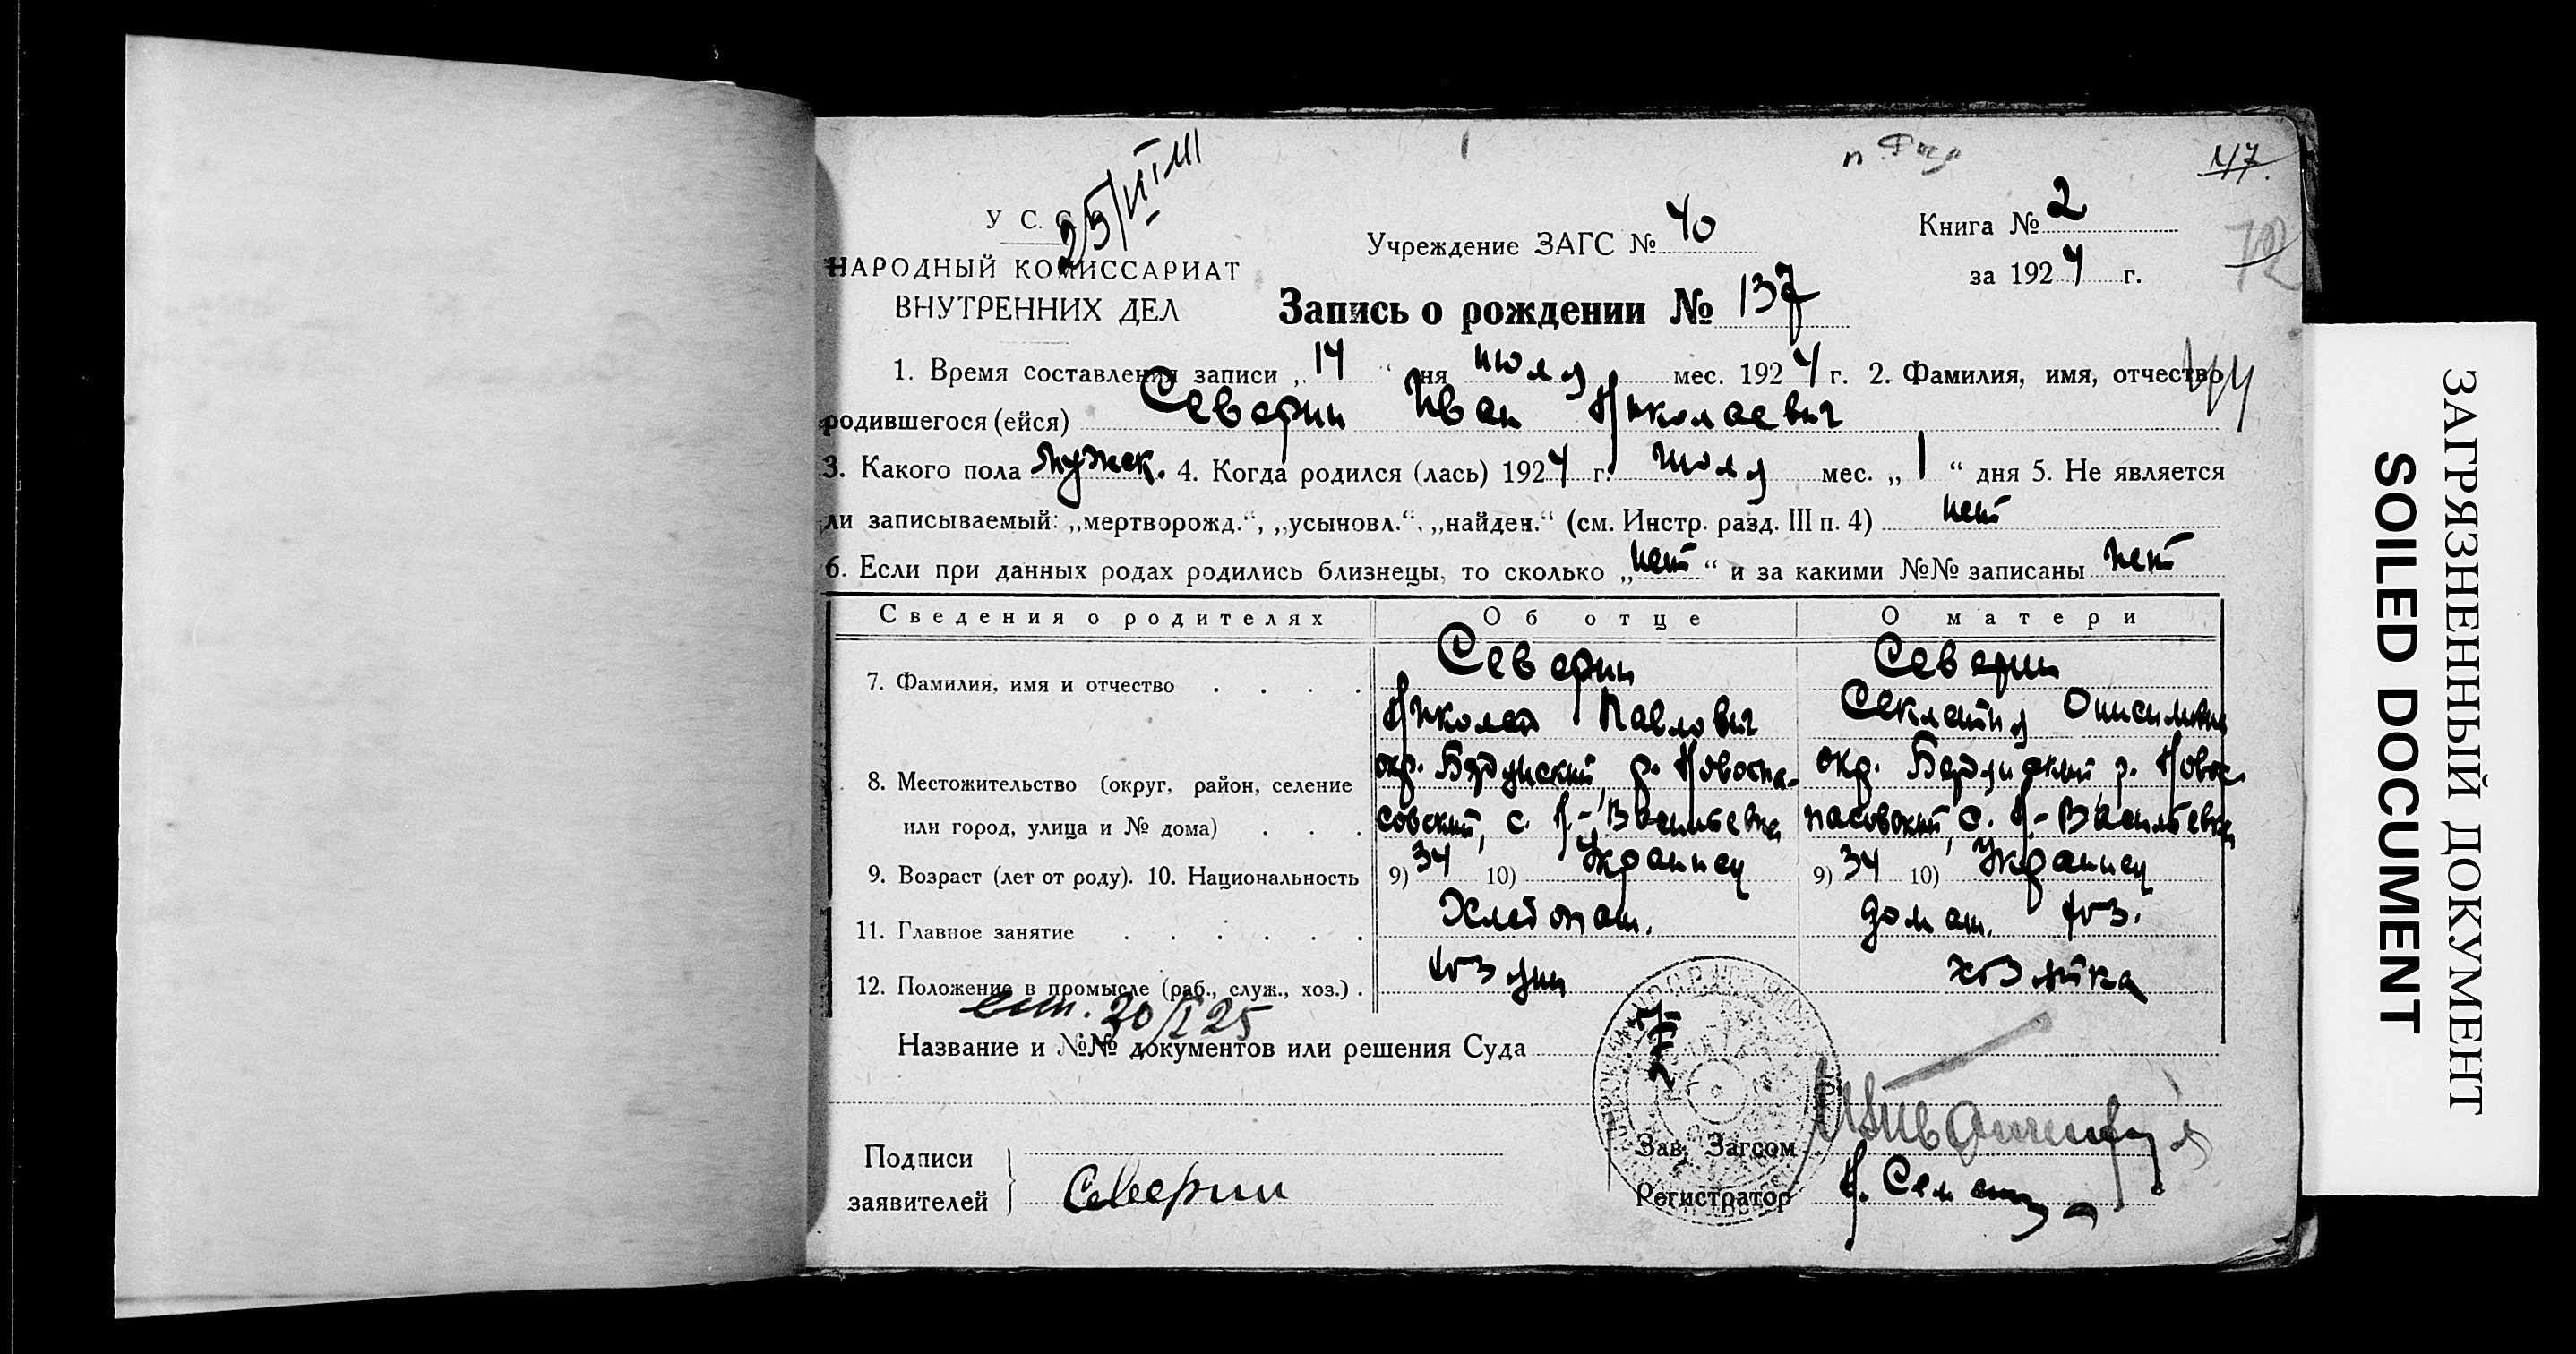 47.
У С. С.
25/VI
Учреждение ЗАГС № 40
Книга № 2
72
за 1924 г.
НАРОДНЫЙ КОМИССАРИАТ
ВНУТРЕННИХ ДЕЛ
Запись о рождении № 137
1. Время составления записи „14“ дня июля мес. 1924 г. 2. Фамилия, имя, отчество
родившегося (ейся) Северин Иван Николаевич
3. Какого пола мужск. 4. Когда родился (лась) 1924 г. июля мес. „1“ дня 5. Не является
ли записываемый: „мертворожд.“, „усыновл.“, „найден.“ (см. Инстр. разд. III п. 4) нет
6. Если при данных родах родились близнецы, то сколько „нет“ и за какими №№ записаны нет
Сведения о родителях Об отце О матери
7. Фамилия, имя и отчество Северин Северин
Николай Павлович Секлетия Онисимовна
8. Местожительство (округ, район, селение окр. Бердянский, р. Новоспа- окр. Бердянский р. Новос-
или город, улица и № дома) совский, с. Н.-Васильевка пасовский, с. Н.-Васильевка
9. Возраст (лет от роду). 10. Национальность 9) 34 10) Украинец 9) 34 10) Украинец
11. Главное занятие Хлебопаш. домаш. хоз.
12. Положение в промысле (раб., служ., хоз.) хозяин хозяйка
20/I 25
Название и №№ документов или решения Суда
Подписи
заявителей Северин
Зав. Загсом
Регистратор
ЗАГРЯЗНЕННЫЙ ДОКУМЕНТ
SOILED DOCUMENT